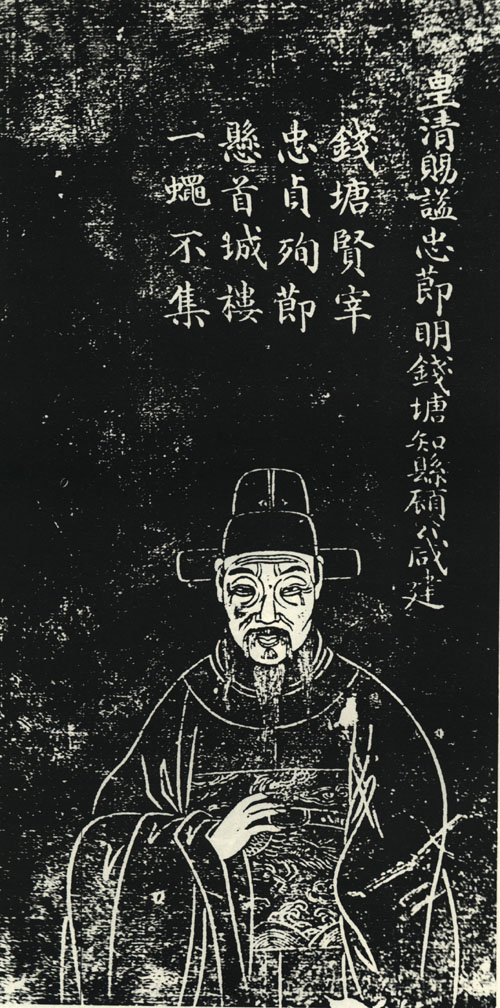 皇清賜謚忠節明錢塘知縣顧公咸建
錢塘賢宰
忠貞殉節
懸首城樓
一蠅不集